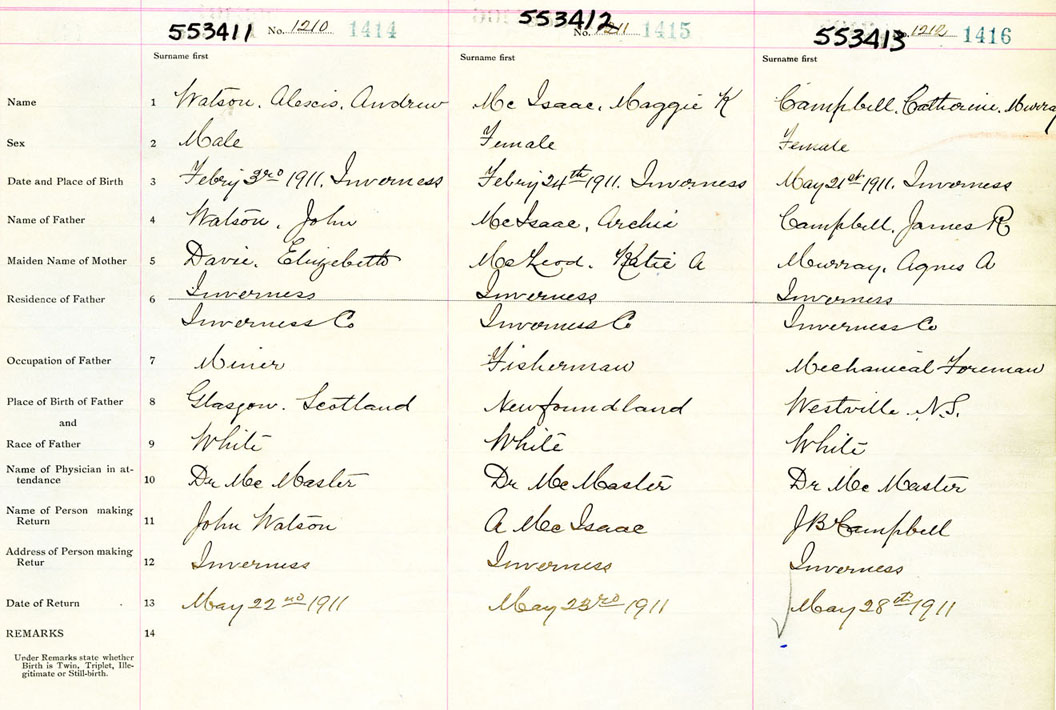 553411 No. 1210 1414 553412 No. 1211 1415 553413 1212 1416
Surname first Surname first Surname first
Name 1 Watson, Alescis, Andrew Mc Isaac, Maggie K Campbell, Catherine, Murray
Sex 2 Male Female Female
Date and Place of Birth 3 Febry 3rd 1911, Inverness Febry 24th 1911, Inverness May 21st 1911, Inverness
Name of Father 4 Watson, John McIsaac, Archie Campbell, James R
Maiden Name of Mother 5 Davie, Elizebeth McLeod, Katie A Murray, Agnes A
Residence of Father 6 Inverness Inverness Inverness
Inverness Co Inverness Co Inverness Co
Occupation of Father 7 Miner Fisherman Mechanical Foreman
Place of Birth of Father 8 Glasgow, Scotland Newfoundland Westville N.S.
and
Race of Father 9 White White White
Name of Physician in at-
tendance 10 Dr Mc Master Dr McMaster Dr Mc Master
Name of Person making
Return 11 John Watson A Mc Isaac Campbell
Address of Person making
Retur 12 Inverness Inverness Inverness
Date of Return 13 May 22nd 1911 May 23rd 1911 May 28th 1911
REMARKS 14
Under Remarks state whether
Birth is Twin, Triplet, Ille-
gitimate or Still-birth.